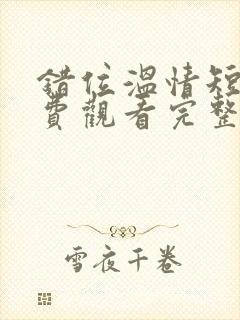 錯位溫情短
費觀看完整
雪夜千卷